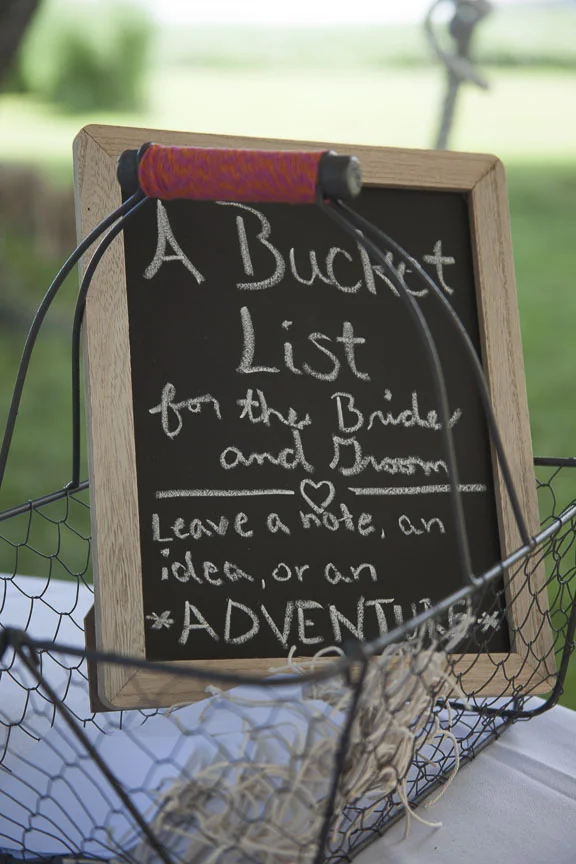 A Bucket
List
for the Bride
and Groom
Leave a note, an
idea, or an
*ADVENTURE*